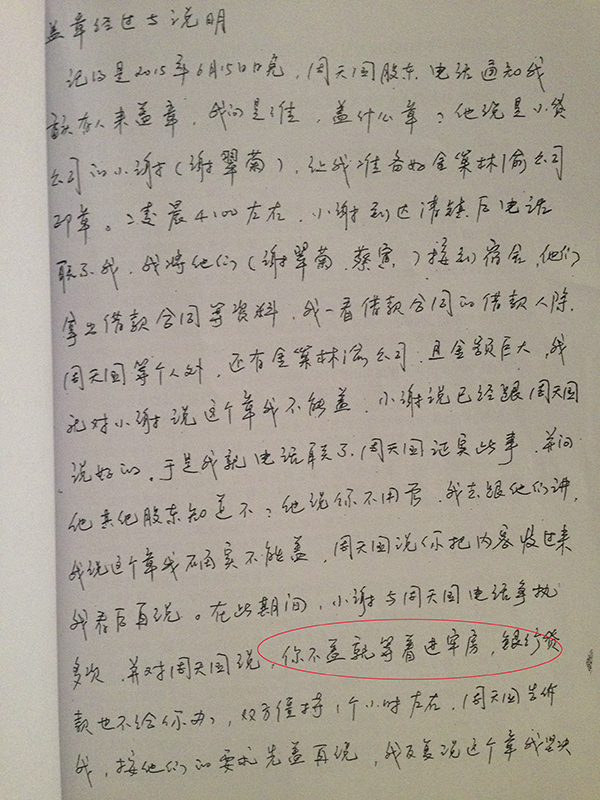 盖章经过与说明
记的是2015年6月15日晚，周天国股东电话通知我
有人来盖章，我问是谁，盖什么章？他说是小贷
公司的小谢（谢翠菊），让我准备好金策林渝公司
印章。凌晨4:00左右，小谢到达清镇后电话
联系我，我将他们（谢翠菊、蔡寅）接到宿舍，他们
拿出借款合同等资料，我一看借款合同的借款人除
周天国等个人外，还有金策林渝公司，且金额巨大，我
就对小谢说这个章我不能盖，小谢说已经跟周天国
说好的，于是我就电话联系周天国证实此事，并问
他其他股东知道不？他说你不用管，我去跟他们讲，
我说这个章我确实不能盖，周天国说你把内容发过来
我看后再说。在此期间，小谢与周天国电话争执
多次，并对周天国说，你不盖就等着进牢房，银行贷
款也不给你办，双方僵持1个小时左右，周天国告诉
我，按他们的要求先盖再说，我反复说这个章我坚决